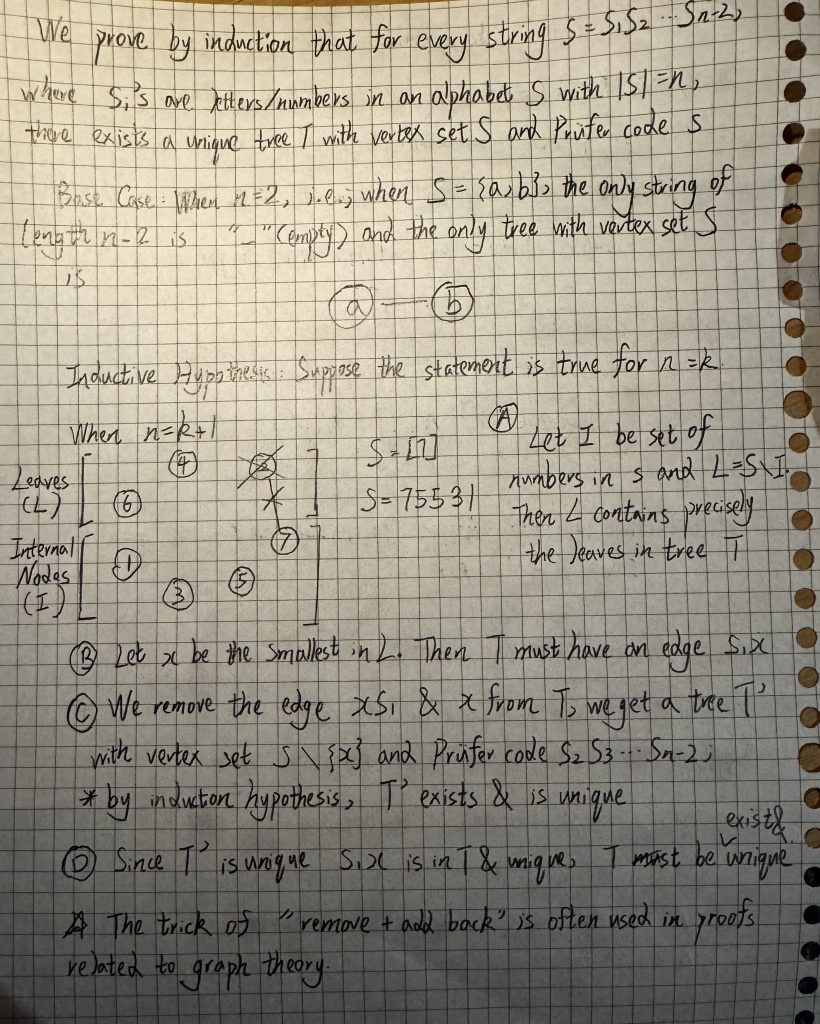 We prove by induction that for every string S = S1S2 ... Sn-2,
where Si's are letters/numbers in an alphabet S with |S| = n,
there exists a unique tree T with vertex set S and Prüfer code s
Base Case: When n=2, i.e., when S = {a,b}, the only string of
length n-2 is "_" (empty) and the only tree with vertex set S
is
a b
Inductive Hypothesis: Suppose the statement is true for n = k.
When n=k+1
Leaves
(L)
4
6
Internal
Nodes
(I)
7
1
3
5
S = [7]
S = 75531
A Let I be set of
numbers in s and L=S\I.
Then L contains precisely
the leaves in tree T
B Let x be the smallest in L. Then T must have an edge S1x
C We remove the edge xS1 & x from T, we get a tree T'
with vertex set S \ {x} and Prüfer code S2 S3 ... Sn-2;
* by inducton hypothesis, T' exists & is unique
exist &
D Since T' is unique S1x is in T & unique, T must be unique
☆ The trick of "remove + add back" is often used in proofs
related to graph theory.